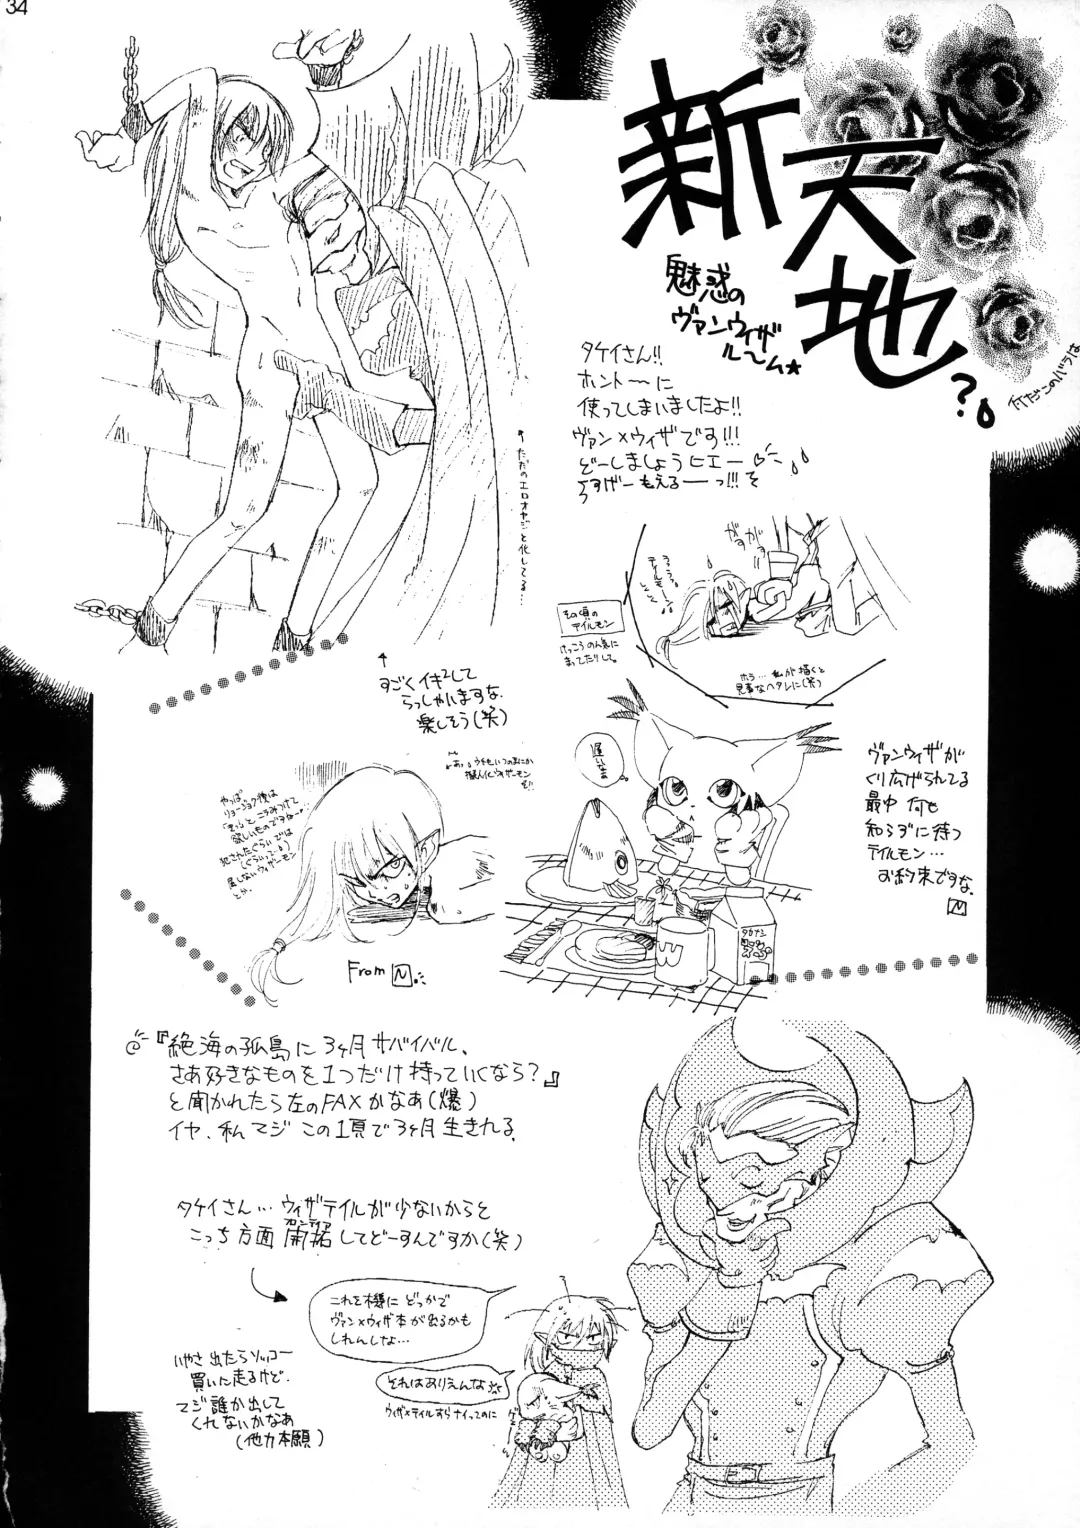 34
新天地?
魅惑の
ヴァンウィザ
ル〜ム★
タケイさん!!
ホント〜に
使ってしまいましたよ!!
ヴァン×ウィザです!!!
どーしましょうヒエー♡
うすげーもえるーっ!!!
何だこのバラは
↑ただのエロオヤジと化してる…
がすがす
テイルモン
その頃の
テイルモン
けっこうのん気に
まってたりして。
ホラ…私が描くと
見事なヘタレに(笑)
↑
すごくイキ²して
らっしゃいますな。
楽しそう(笑)
遅いなぁ
ヴァンウィザが
くり広げられてる
最中 何も
知らずに待つ
テイルモン…
お約束ですな。
N
やっぱ
欲しいものですねー
犯されたぐらいでは
屈しないウィザーモン
タカナシ
W
From N
『絶海の孤島に 3ヶ月サバイバル、
さあ好きなものを1つだけ持っていくなら?』
と聞かれたら左のFAXかなあ(爆)
イヤ、私マジこの1頁で3ヶ月生きれる。
タケイさん…ウィザテイルが少ないからと
こっち方面 開拓してどーすんですか(笑)
これを機に どっかで
ヴァン×ウィザ本が出るかも
しれんしな…
それはありえんな
ウィザ×テイルすらナイってのに
いやさ 出たらソッコー
買いに走るけど。
マジ誰か出して
くれないかなあ
(他力本願)